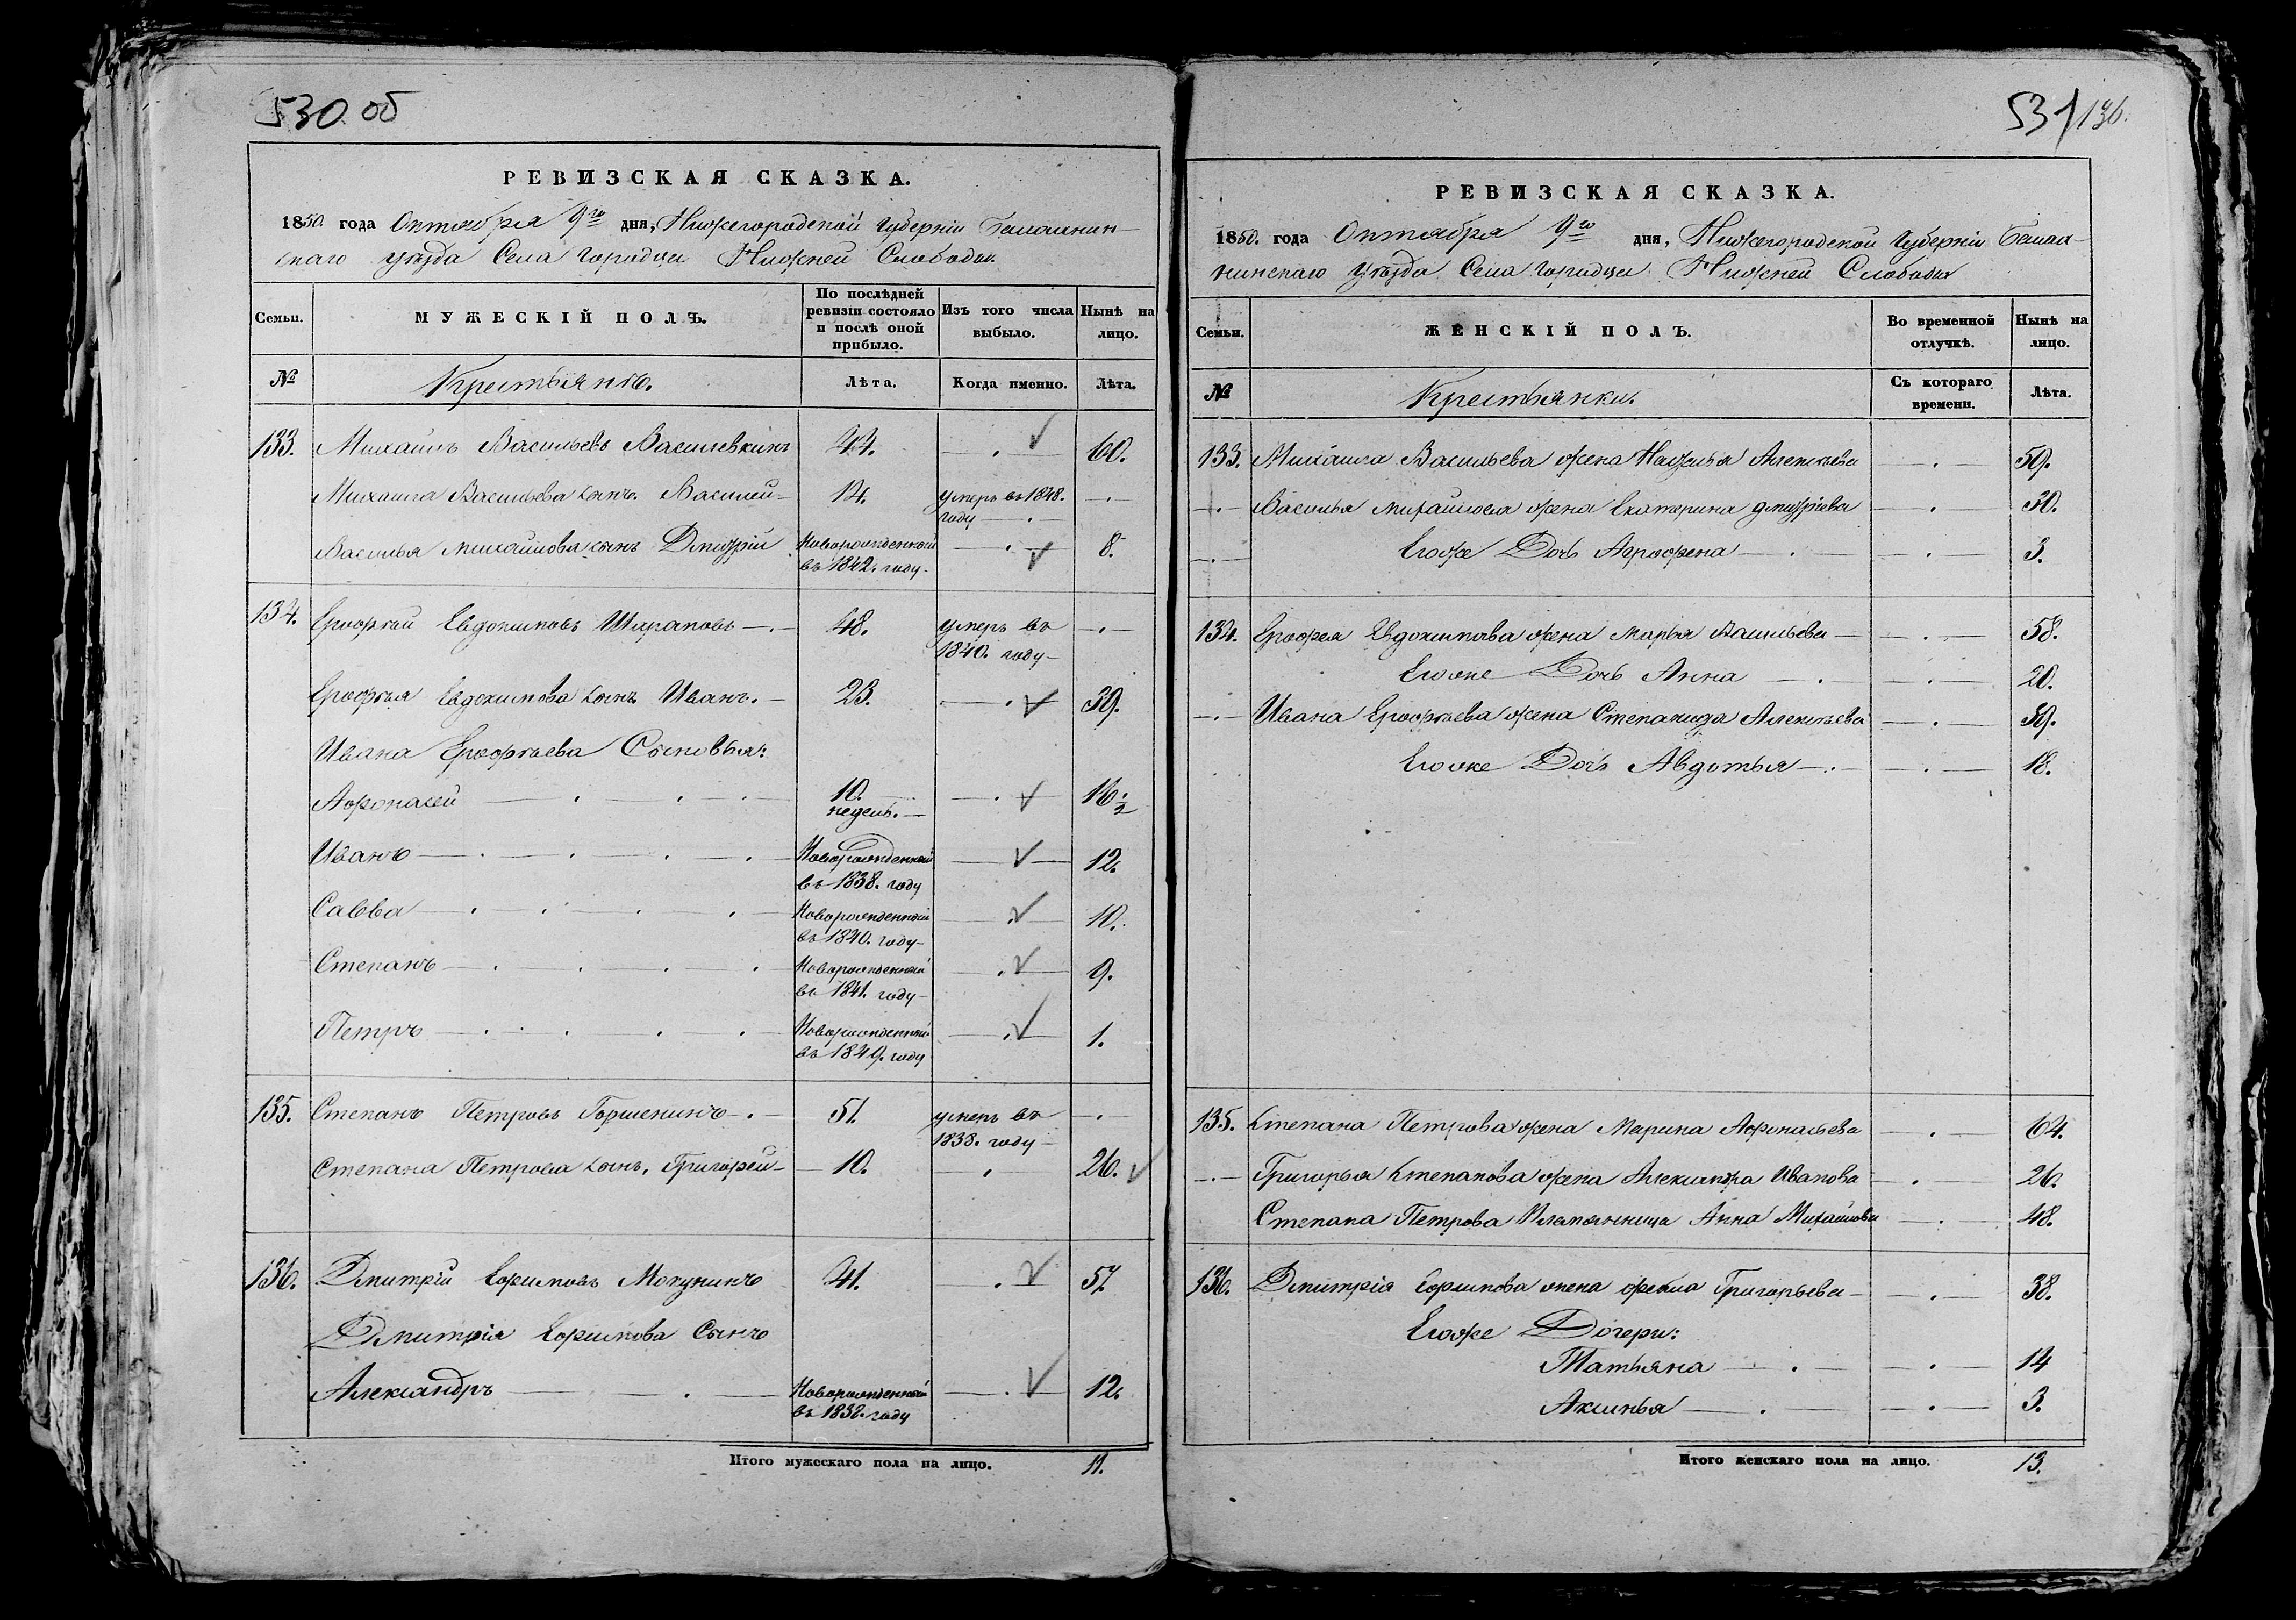 530 об
РЕВИЗСКАЯ СКАЗКА.
1850 года Октября 9го дня, Нижегородской Губерніи Балахнин-
скаго уѣзда Села Городца Нижней Слободы
Семьи.
МУЖЕСКІЙ ПОЛЪ.
По послѣдней ревизіи состояло и послѣ оной прибыло.
Изъ того числа выбыло.
Нынѣ на лицо.
№
Крестьянѣ.
Лѣта.
Когда именно.
Лѣта.
133. Михаилъ Васильевъ Василевкинъ 44. 60.
Михаила Васильева сынъ Василей 14. умеръ въ 1848. году
Василья Михайлова сынъ Дмитрій Новорожденный въ 1842. году 8.
134. Ерофѣй Евдокимовъ Шираповъ 48. умеръ въ 1840. году
Ерофѣя Евдокимова сынъ Иванъ. 23. 39.
Ивана Ерофѣева Сыновья:
Афонасей 10. недель. 16 1/2
Иванъ Новорожденный въ 1838. году 12.
Савва Новорожденный въ 1840. году 10.
Степанъ Новорожденный въ 1841. году 9.
Петръ Новорожденный въ 1849. году 1.
135. Степанъ Петровъ Горшенинъ 51. умеръ въ 1838. году
Степана Петрова сынъ, Григорей 10. 26.
136. Дмитрій Ефимовъ Мокунинъ 41. 57.
Дмитрія Ефимова Сынъ
Александръ Новорожденный въ 1838. году 12.
Итого мужескаго пола на лицо. 11.
531 136.
РЕВИЗСКАЯ СКАЗКА.
1850. года Октября 9го дня, Нижегородской Губерніи Балах-
нинскаго уѣзда Села Городца Нижней Слободы
Семьи.
ЖЕНСКІЙ ПОЛЪ.
Во временной отлучкѣ.
Нынѣ на лицо.
№
Крестьянки.
Съ котораго времени.
Лѣта.
133. Михаила Васильева жена Надежда Алексѣева 59.
Василья Михайлова жена Екатерина Дмитріева 30.
Егоже Дочь Аграфена 3.
134. Ерофея Евдокимова жена Марья Васильева 58.
Егоже Дочь Анна 20.
Ивана Ерофѣева жена Степанида Алексѣева 39.
Егоже Дочь Авдотья 18.
135. Степана Петрова жена Марина Афонасьева 64.
Григорья Степанова жена Александра Иванова 26.
Степана Петрова Племянница Анна Михайлова 48.
136. Дмитрія Ефимова жена Фекла Григорьева 38.
Егоже Дочери:
Татьяна 14
Аксинья 3.
Итого женскаго пола на лицо. 13.